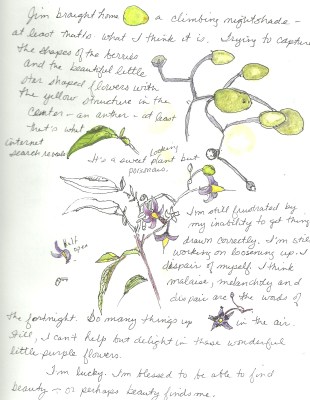 Jim braight home a climbing nightshade -
at least that's what I think it is. Trying to capture
the shapes of the berries
and the beautiful little
star shaped flowers with
the yellow structure in the
center - an anther - at least
that's what
internet
search reveals
It's a sweet looking plant but
poisonous.
Half
open
I'm still frustrated by
my inability to get things
drawn correctly. I'm still
working on loosening up. I
dispair of myself. I think
malaise, melancholy and
dispair are the words of
the fortnight. So many things up in the air.
Still, I can't help but delight in those wonderful
little purple flowers.
I'm lucky. I'm blessed to be able to find
beauty - or perhaps beauty finds me.